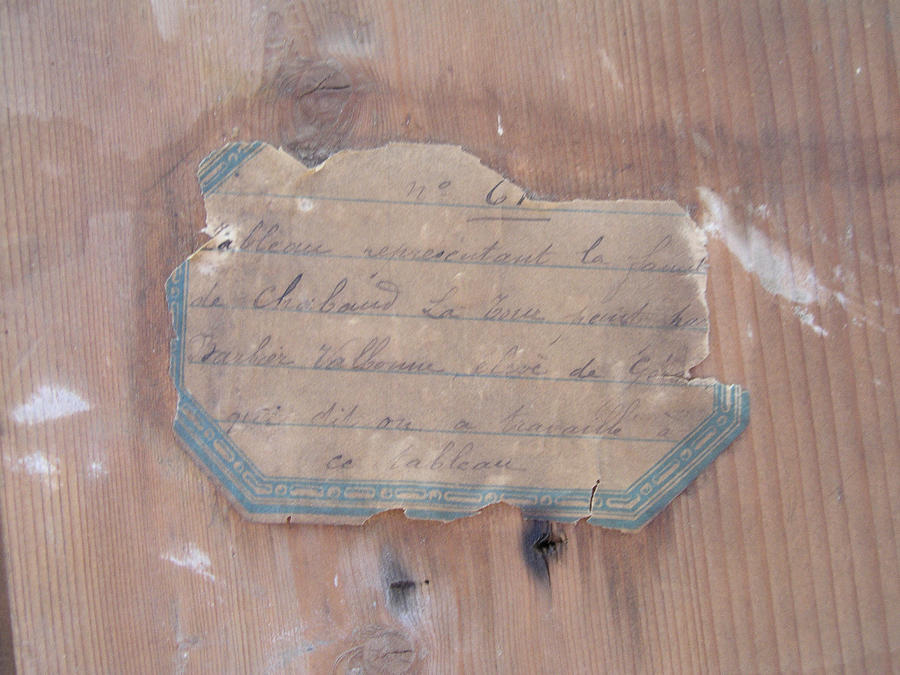 n° 61
Tableau représentant la famil
de Chabaud La Tour, peint pa
Barbier Valbonne, élève de Géra
qui dit on a travaillé à
ce tableau